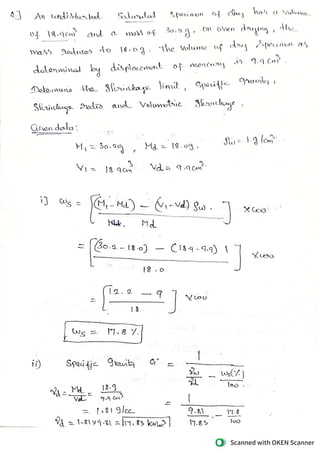 Q] An undisturbed Saturated specimen of clay has a volume
of 18.9cm³ and a mass of 30.2g. On oven drying, the
mass reduces to 18.0g. The volume of dry specimen as
determined by displacement of mercury is 9.9cm³.
Determine the Shrinkage limit, Specific gravity,
Shrinkage ratio and Volumetric Shrinkage.
Given data:
M₁ = 30.2g, Md = 18.0g. ρw = 1 g/cm³
V₁ = 18.9cm³ Vd = 9.9cm³.
i] ws = [(M₁-Md) - (V₁-Vd) ρw. / Md] X100
= [(30.2-18.0) - (18.9-9.9) 1 / 18.0] X100
= [12.2 - 9 / 18] X100
ws = 17.8 %
ii) Specific gravity G = 1 / (γw/γd - ws(%)/100)
γd = Md/Vd = 18.9/9.9cm³ = 1 / (9.81/17.85 - 17.8/100)
= 1.81 g/cc
γd = 1.81x9.81 = 17.85 kN/m³
Scanned with OKEN Scanner